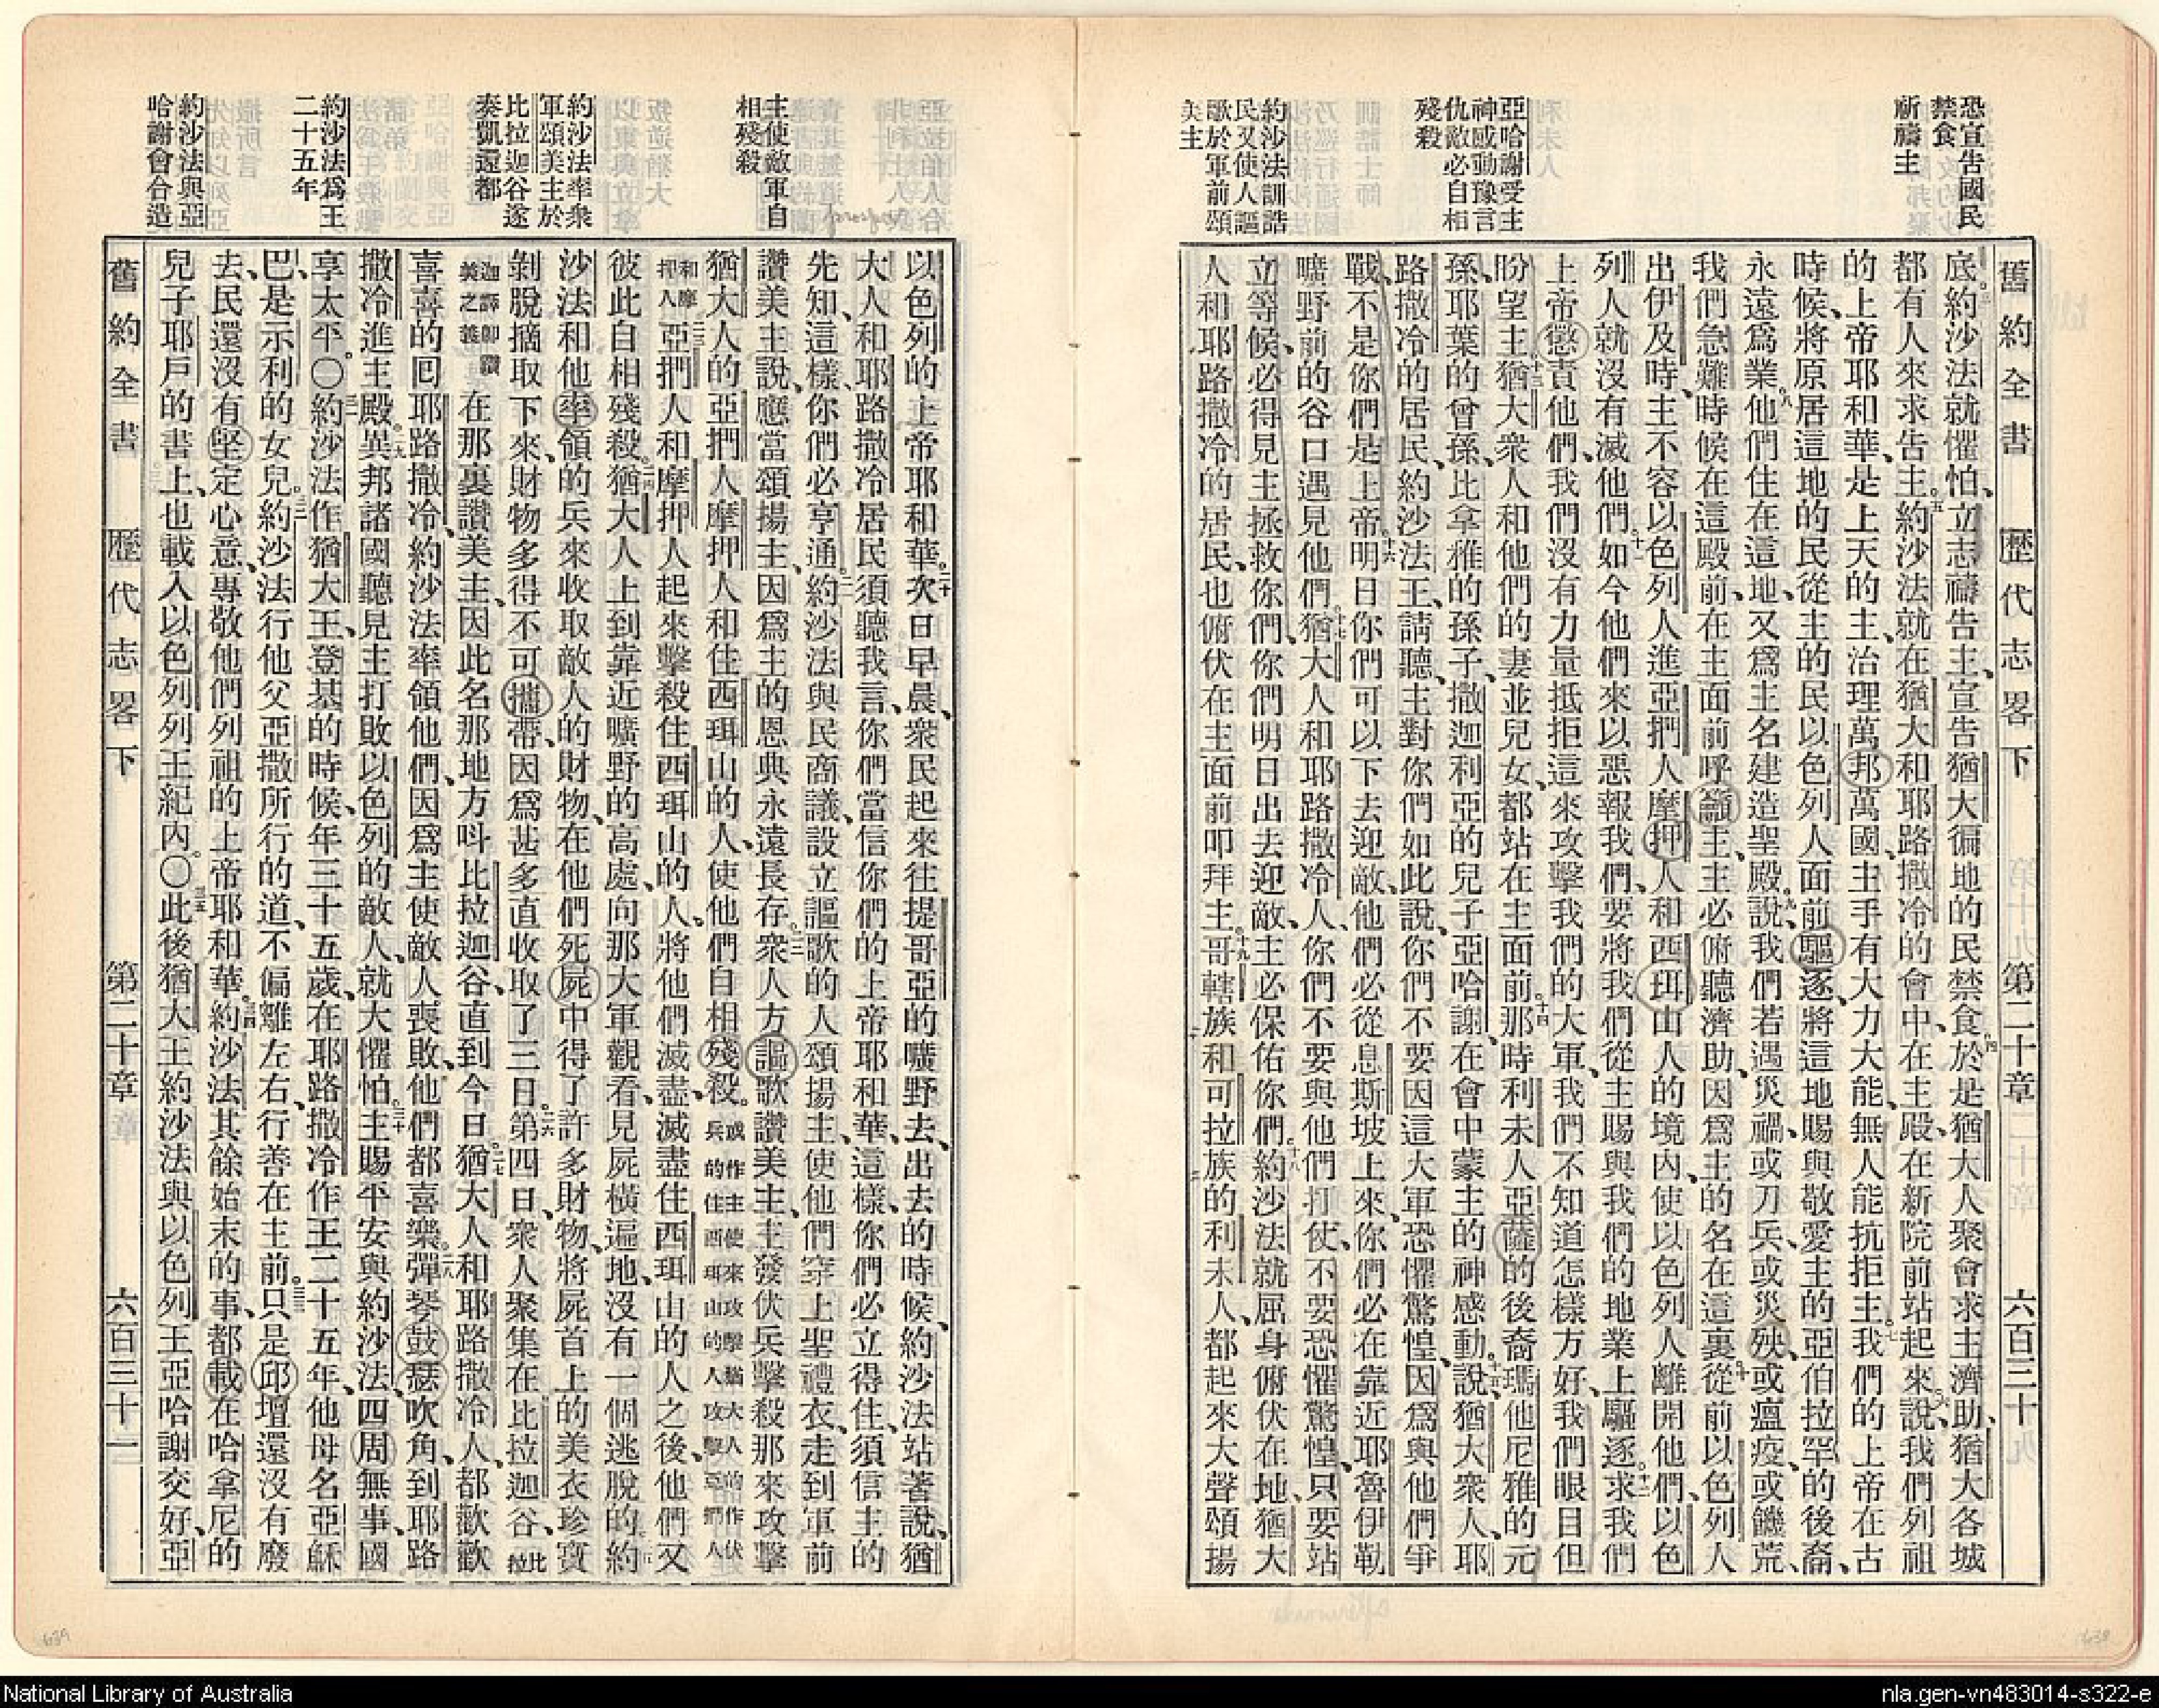 恐宣告國民
禁食
祈禱主
亞哈謝受主
神感動豫言
仇敵必自相
殘殺
約沙法訓誥
民又使人謳
歌於軍前頌
美主
舊約全書 歷代志畧下 第二十章 六百三十
底。約沙法就懼怕、立志禱告主、宣告猶大徧地的民禁食。四於是猶大人聚會求主濟助、猶大各城
都有人來求告主。五約沙法就在猶大和耶路撒冷的會中、在主殿、在新院前站起來說、六我們列祖
的上帝耶和華、是上天的主、治理萬邦萬國、主手有大力大能、無人能抗拒主。七我們的上帝在古
時候、將原居這地的民、從主的民以色列人面前驅逐、將這地賜與敬愛主的亞伯拉罕的後裔、
永遠爲業。八他們住在這地、又爲主名建造聖殿、說、九我們若遇災禍、或刀兵、或災殃、或瘟疫、或饑荒、
我們急難時候、在這殿前、在主面前呼籲主、主必俯聽濟助、因爲主的名在這裏。十從前以色列人
出伊及時、主不容以色列人進亞捫人摩押人和西珥山人的境內、使以色列人離開他們、以色
列人就沒有滅他們。十一如今他們來以惡報我們、要將我們從主賜與我們的地業上驅逐。十二求我們
上帝懲責他們、我們沒有力量抵拒這來攻擊我們的大軍、我們不知道怎樣方好、我們眼目但
盼望主。十三猶大衆人和他們的妻並兒女、都站在主面前。十四那時利未人亞薩的後裔瑪他尼雅的元
孫、耶葉的曾孫、比拿雅的孫子、撒迦利亞的兒子亞哈謝、在會中蒙主的神感動、十五說、猶大衆人、耶
路撒冷的居民、約沙法王、請聽、主對你們如此說、你們不要因這大軍恐懼驚惶、因爲與他們爭
戰、不是你們、是上帝。十六明日你們可以下去迎敵、他們必從息斯坡上來、你們必在靠近耶魯伊勒
曠野前的谷口遇見他們。十七猶大人和耶路撒冷人、你們不要與他們打仗、不要恐懼驚惶、只要站
立等候、必得見主拯救你們、你們明日出去迎敵、主必保佑你們。十八約沙法就屈身俯伏在地、猶大
人和耶路撒冷的居民、也俯伏在主面前、叩拜主。十九哥轄族和可拉族的利未人、都起來大聲頌揚
主使敵軍自
相殘殺
約沙法率衆
軍頌美主於
比拉迦谷遂
奏凱還都
約沙法爲王
二十五年
約沙法與亞
哈謝會合造
以色列的上帝耶和華。二十次日早晨、衆民起來往提哥亞的曠野去、出去的時候、約沙法站著說、猶
大人和耶路撒冷居民、須聽我言、你們當信你們的上帝耶和華、這樣、你們必立得住、須信主的
先知、這樣、你們必亨通。二一約沙法與民商議、設立謳歌的人頌揚主、使他們穿上聖禮衣、走到軍前
讚美主說、應當頌揚主、因爲主的恩典永遠長存。二二衆人方謳歌讚美主、主發伏兵擊殺那來攻擊
猶大人的亞捫人摩押人和住西珥山的人、使他們自相殘殺。或作主使來攻擊猶大人的作伏兵的住西珥山的人攻擊亞捫人
和摩押人二三亞捫人和摩押人起來擊殺住西珥山的人、將他們滅盡、滅盡住西珥山的人之後、他們又
彼此自相殘殺。二四猶大人上到靠近曠野的高處、向那大軍觀看、見屍橫遍地、沒有一個逃脫的。二五約
沙法和他率領的兵來收取敵人的財物、在他們死屍中得了許多財物、將屍首上的美衣珍寶
剝脫摘取下來、財物多得不可攜帶、因爲甚多、直收取了三日。二六第四日、衆人聚集在比拉迦谷、比拉
迦譯卽讚美之義在那裏讚美主、因此名那地方呌比拉迦谷、直到今日。二七猶大人和耶路撒冷人、都歡歡
喜喜的囘耶路撒冷、約沙法率領他們、因爲主使敵人喪敗、他們都喜樂。二八彈琴鼓瑟吹角、到耶路
撒冷進主殿。二九異邦諸國聽見主打敗以色列的敵人、就大懼怕。三十主賜平安與約沙法、四周無事、國
享太平。〇三一約沙法作猶大王、登基的時候、年三十五歲、在耶路撒冷作王二十五年、他母名亞穌
巴、是示利的女兒。三二約沙法行他父亞撒所行的道、不偏離左右、行善在主前。三三只是邱壇還沒有廢
去、民還沒有堅定心意、專敬他們列祖的上帝耶和華。三四約沙法其餘始末的事、都載在哈拿尼的
兒子耶戶的書上、也載入以色列列王紀內。〇三五此後猶大王約沙法與以色列王亞哈謝交好、亞
舊約全書 歷代志畧下 第二十章 六百三十一
National Library of Australia
nla.gen-vn483014-s322-e